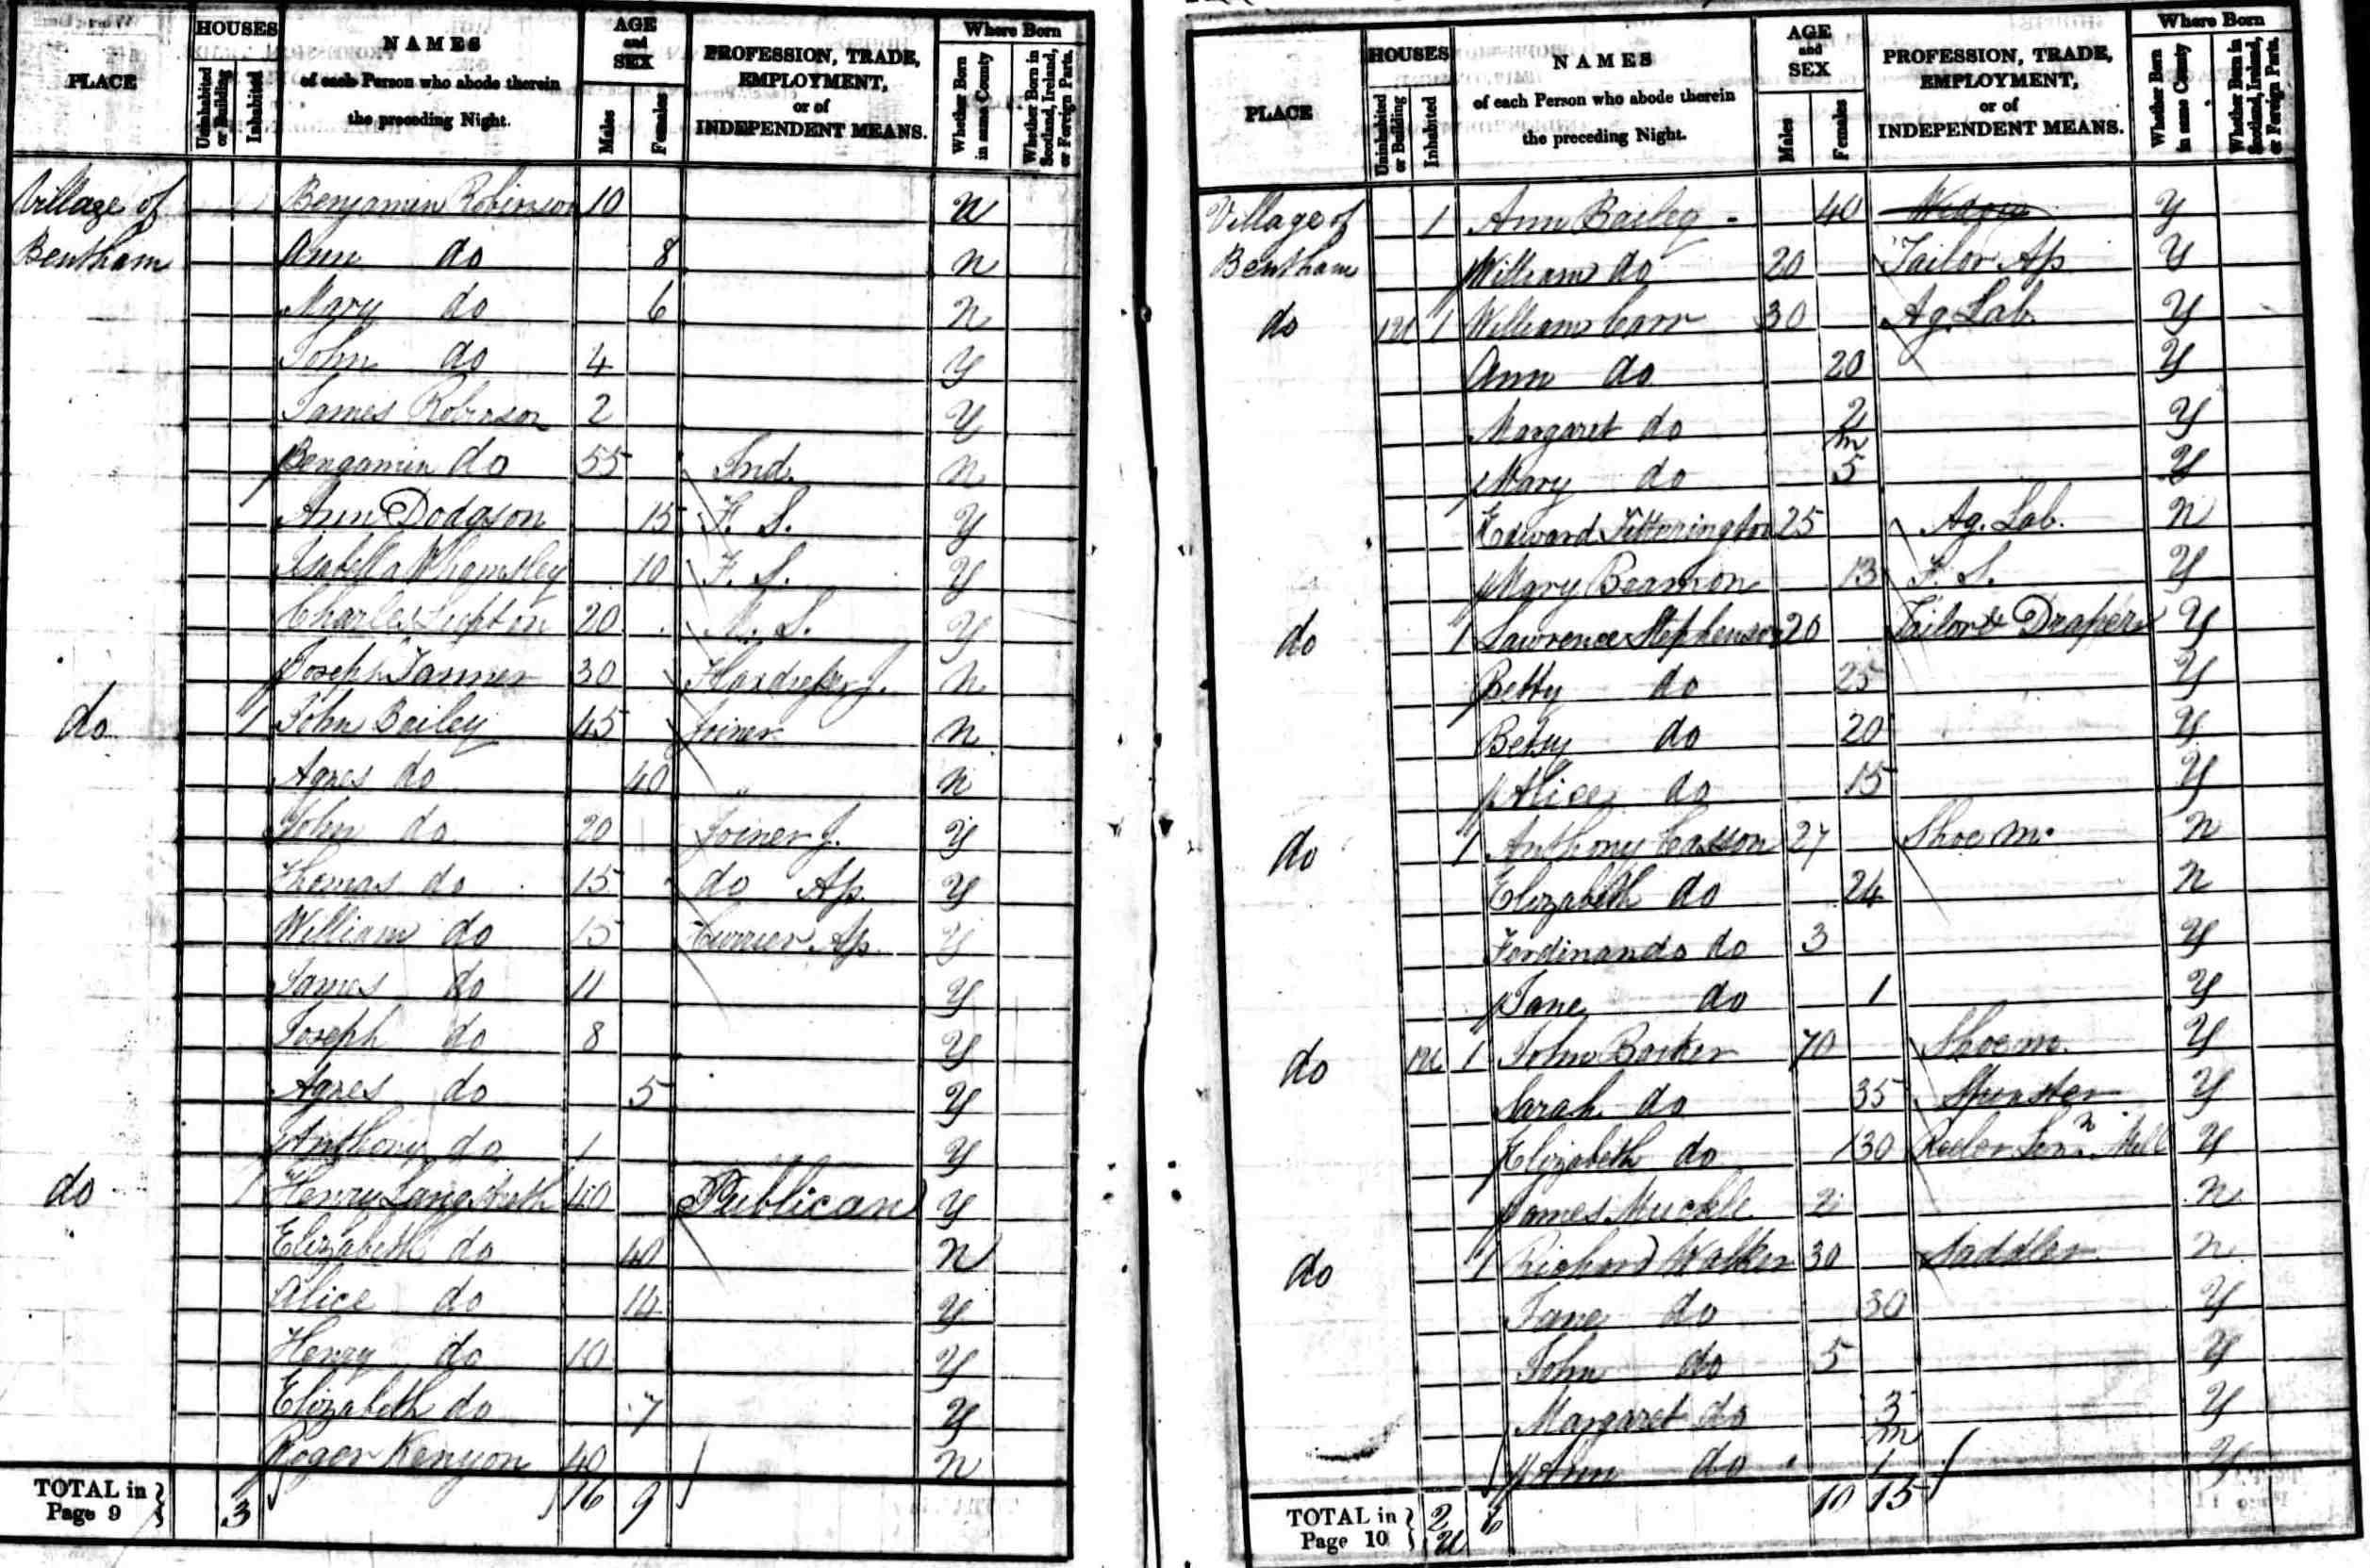 PLACE HOUSES Uninhabited or Building Inhabited NAMES of each Person who abode therein the preceding Night. AGE and SEX Males Females PROFESSION, TRADE, EMPLOYMENT, or of INDEPENDENT MEANS. Where Born Whether Born in same County Whether Born in Scotland, Ireland, or Foreign Parts.
Village of Benjamin Robinson 10 N
Bentham Ann do 8 N
Mary do 6 N
John do 4 Y
James Robinson 2 Y
Bengamin do 55 Ind. N
Ann Dodgson 15 F. S. Y
Isabella 10 F. S. Y
Charles Lupton 20 M. S. Y
Joseph Tanner 30 N
do 1 John Bailey 45 Joiner N
Agnes do 40 " N
John do 20 Joiner J. Y
Thomas do 15 do Ap. Y
William do 15 Currier Ap. Y
James do 11 Y
Joseph do 8 Y
Agnes do 5 Y
Anthony do 1 Y
do 1 Henry Langstroth 40 Publican Y
Elizabeth do 40 N
Alice do 14 Y
Henry do 10 Y
Elizabeth do 7 Y
Roger Kenyon 40 N
TOTAL in Page 9 3 16 9
PLACE HOUSES Uninhabited or Building Inhabited NAMES of each Person who abode therein the preceding Night. AGE and SEX Males Females PROFESSION, TRADE, EMPLOYMENT, or of INDEPENDENT MEANS. Where Born Whether Born in same County Whether Born in Scotland, Ireland, or Foreign Parts.
Village of 1 Ann Bailey 40 Widow Y
Bentham William do 20 Tailor Ap Y
do 1U 1 William Carr 30 Ag. Lab. Y
Ann do 20 Y
Margaret do 2 Y
Mary do m 5 Y
Edward Titterington 25 Ag. Lab. N
Mary 13 F. S. Y
do 1 Lawrence Stephenson 20 Tailor & Draper Y
Betty do 25 Y
Betsy do 20 Y
Alice do 15 Y
do 1 Anthony Casson 27 Shoe m. N
Elizabeth do 24 N
Ferdinando do 3 Y
Jane do 1 Y
do 1U 1 John Barker 70 Shoe m. Y
Sarah do 35 Spinster Y
Elizabeth do 30 Reeler Mill Y
James Muckle 2 N
do 1 Richard Walker 30 Saddler N
Jane do 30 Y
John do 5 Y
Margaret do 3 Y
Ann do m 1 Y
TOTAL in Page 10 2 U 6 10 15